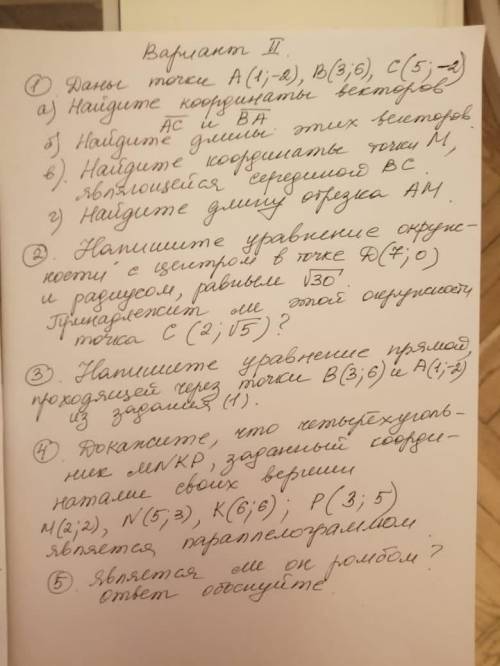 Вариант II.
① Даны точки A(1;-2), B(3;6), C(5;-2)
а) Найдите координаты векторов
AC и BA
б) Найдите длины этих векторов
в) Найдите координаты точки M,
являющейся серединой BC.
г) Найдите длину отрезка AM.
② Напишите уравнение окруж-
ности с центром в точке D(7;0)
и радиусом, равным √30.
Принадлежит ли этой окружности
точка C (2;√5)?
③ Напишите уравнение прямой,
проходящей через точки B(3;6) и A(1;-2)
из задания (1).
④ Докажите, что четырёхуголь-
ник MNKP, заданный коорди-
натами своих вершин
M(2;2), N(5;3), K(6;6); P(3;5)
является параллелограммом
⑤ Является ли он ромбом?
ответ обоснуйте.